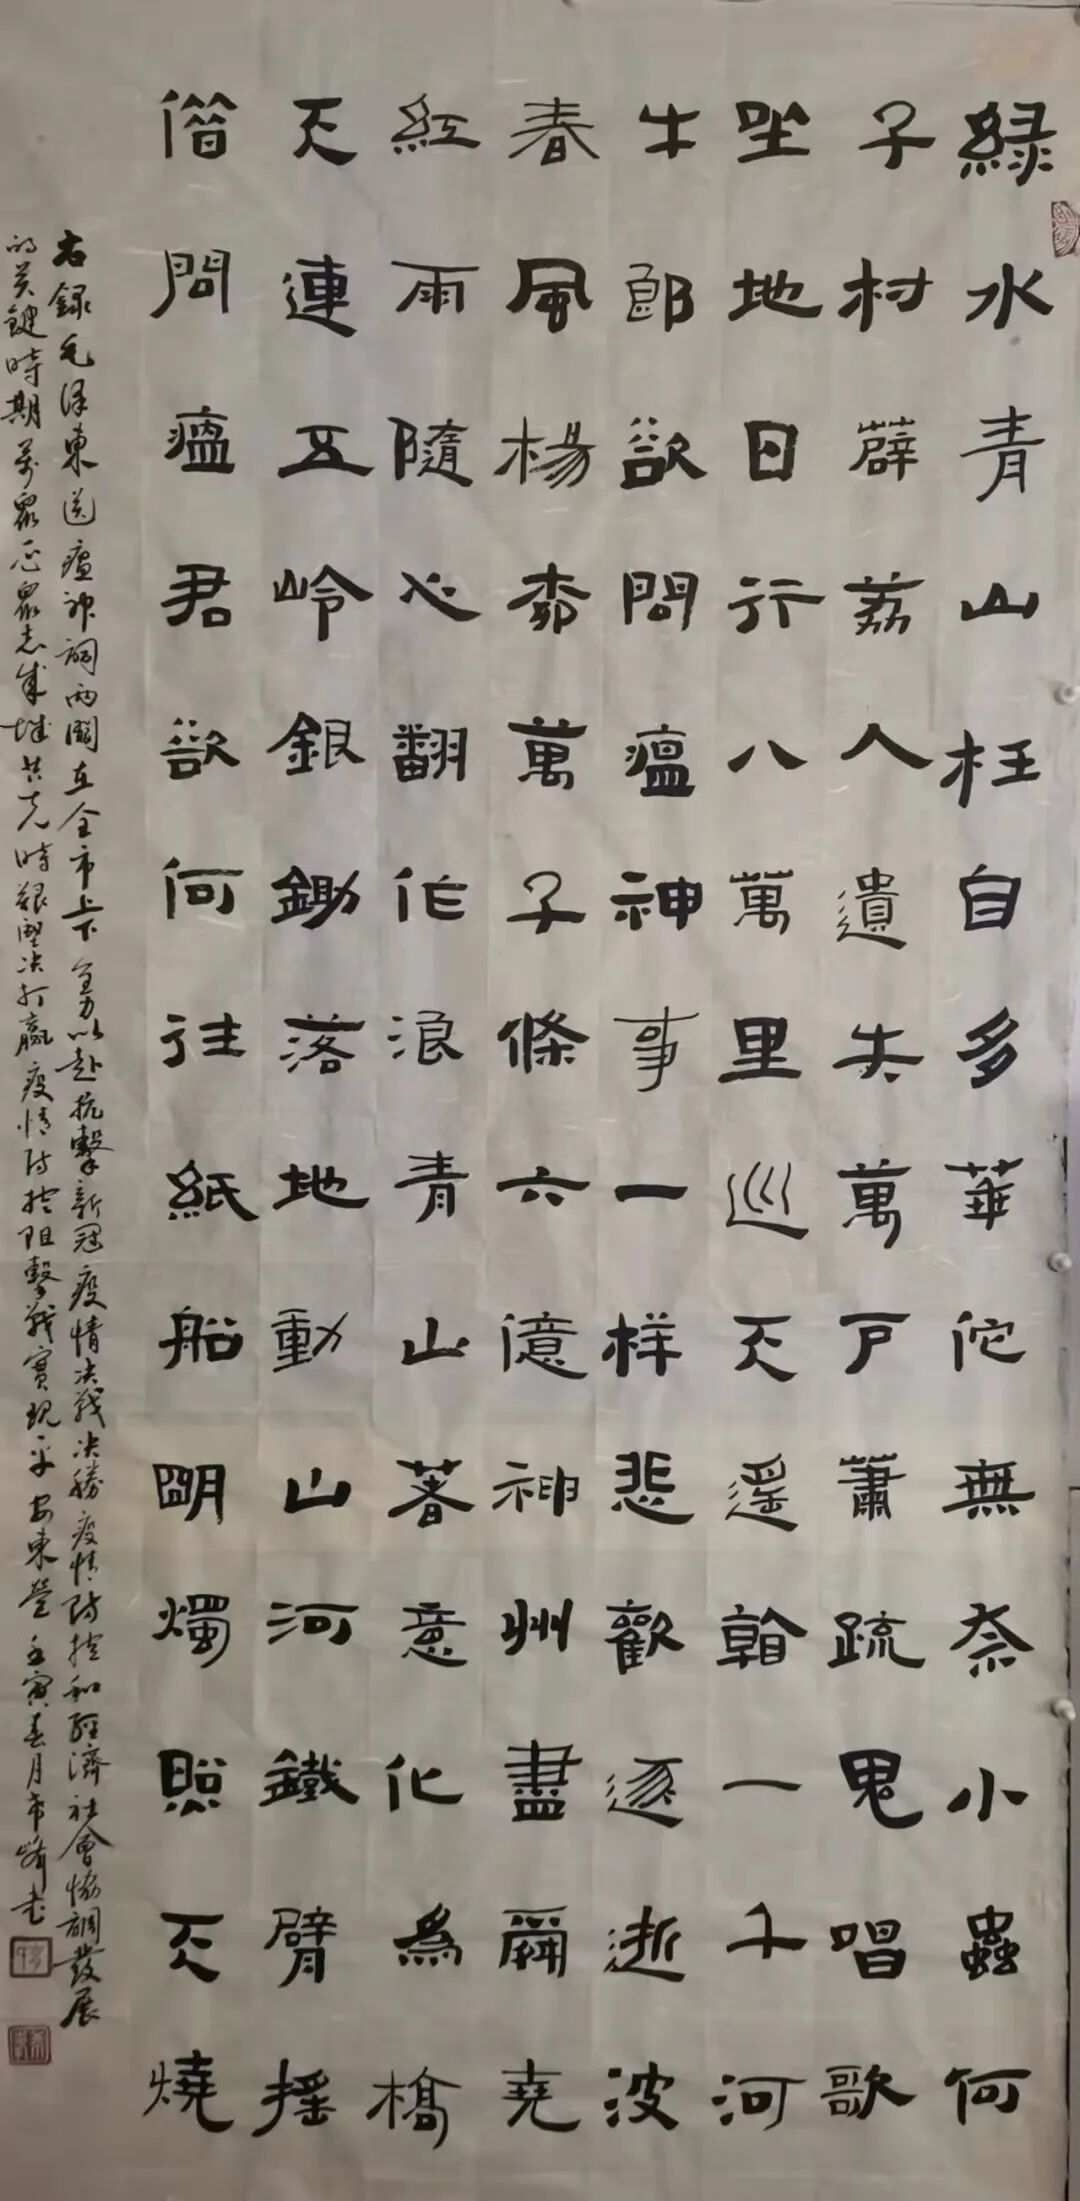 緑水青山枉自多華佗無奈小蟲何
子村薜荔人遺失萬戶蕭疏鬼唱歌
坐地日行八萬里巡天遥看一千河
牛郎欲問瘟神事一样悲歡逐逝波
春風楊柳萬子條六億神州盡舜堯
紅雨隨心翻作浪青山著意化為橋
天連五岭銀鋤落地動山河鐵臂摇
借問瘟君欲何往紙船明燭照天燒
右録毛泽東送瘟神詞两闋在全市上下全力以赴抗擊新冠疫情决戰决勝疫情防控和經濟社會協調發展
的关鍵時期萬眾一心眾志成城共克時艱堅决打赢疫情防控阻擊戰實現平安東營壬寅春月希峰书